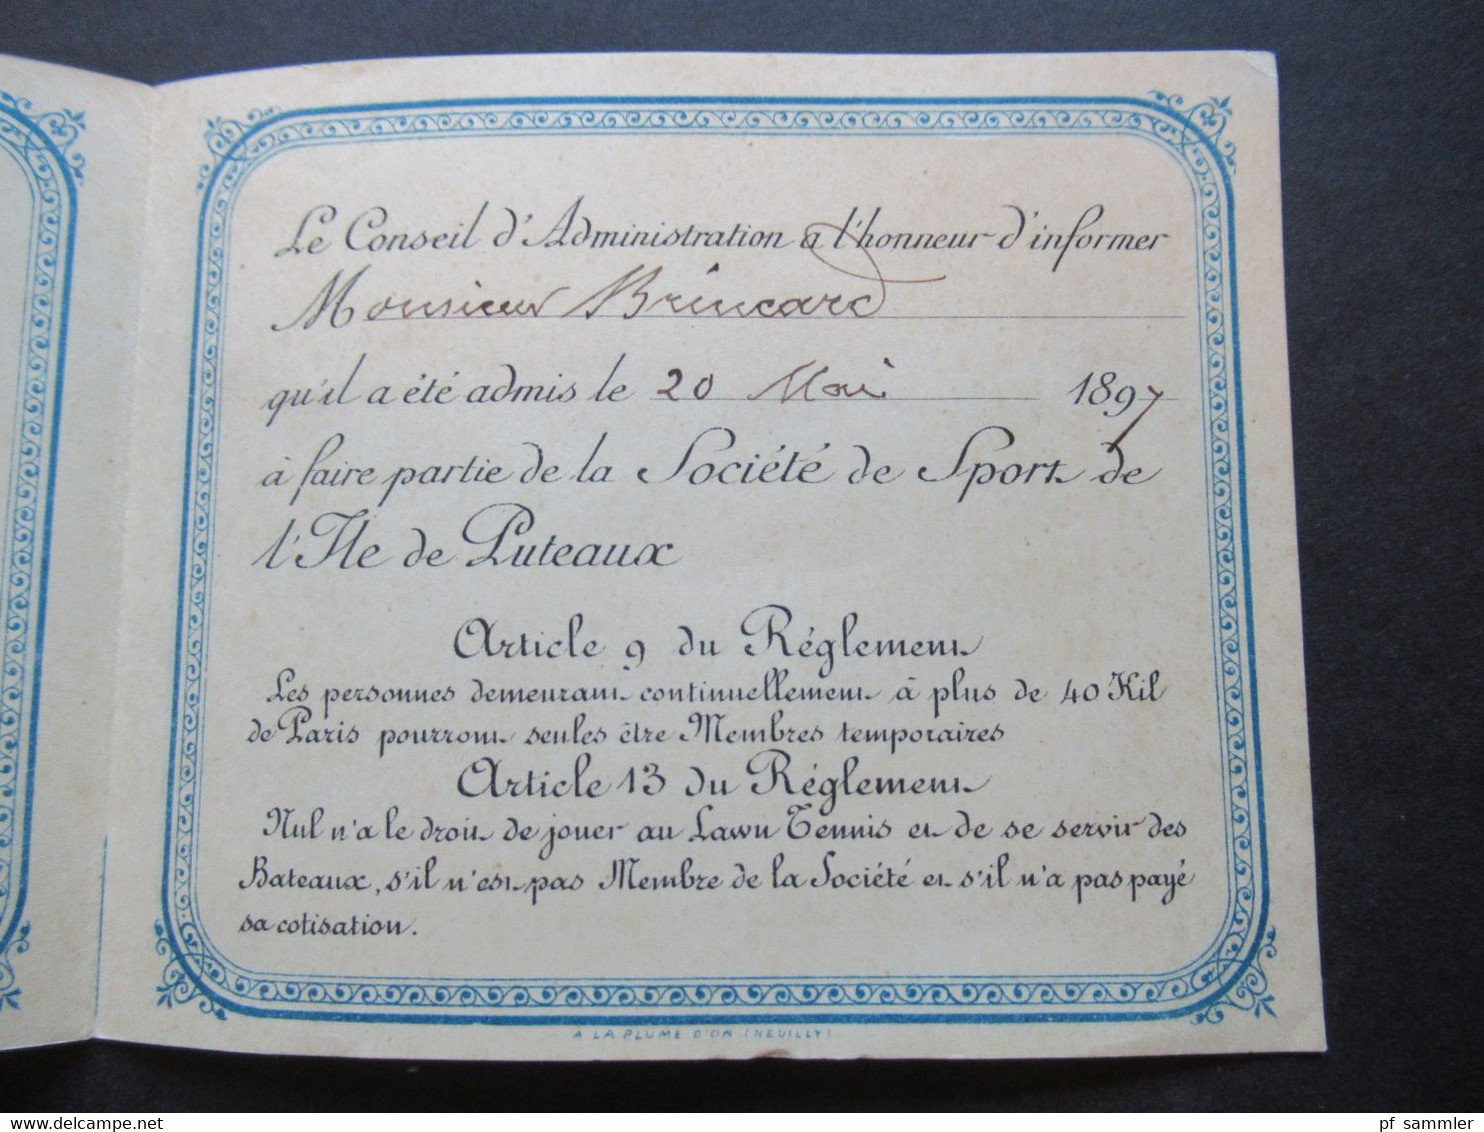 Le Conseil d'Administration a l'honneur d'informer
Monsieur Brincard
qu'il a été admis le 20 Mai 1897
à faire partie de la Société de Sport de
l'Ile de Puteaux
Article 9 du Réglement
Les personnes demeurant continuellement à plus de 40 Kil
de Paris pourront seules être Membres temporaires
Article 13 du Réglement
Nul n'a le droit de jouer au Lawn Tennis et de se servir des
Bateaux, s'il n'est pas Membre de la Société et s'il n'a pas payé
sa cotisation.
A LA PLUME D'OR (NEUILLY)
www.delcampe.net
pf_sammler